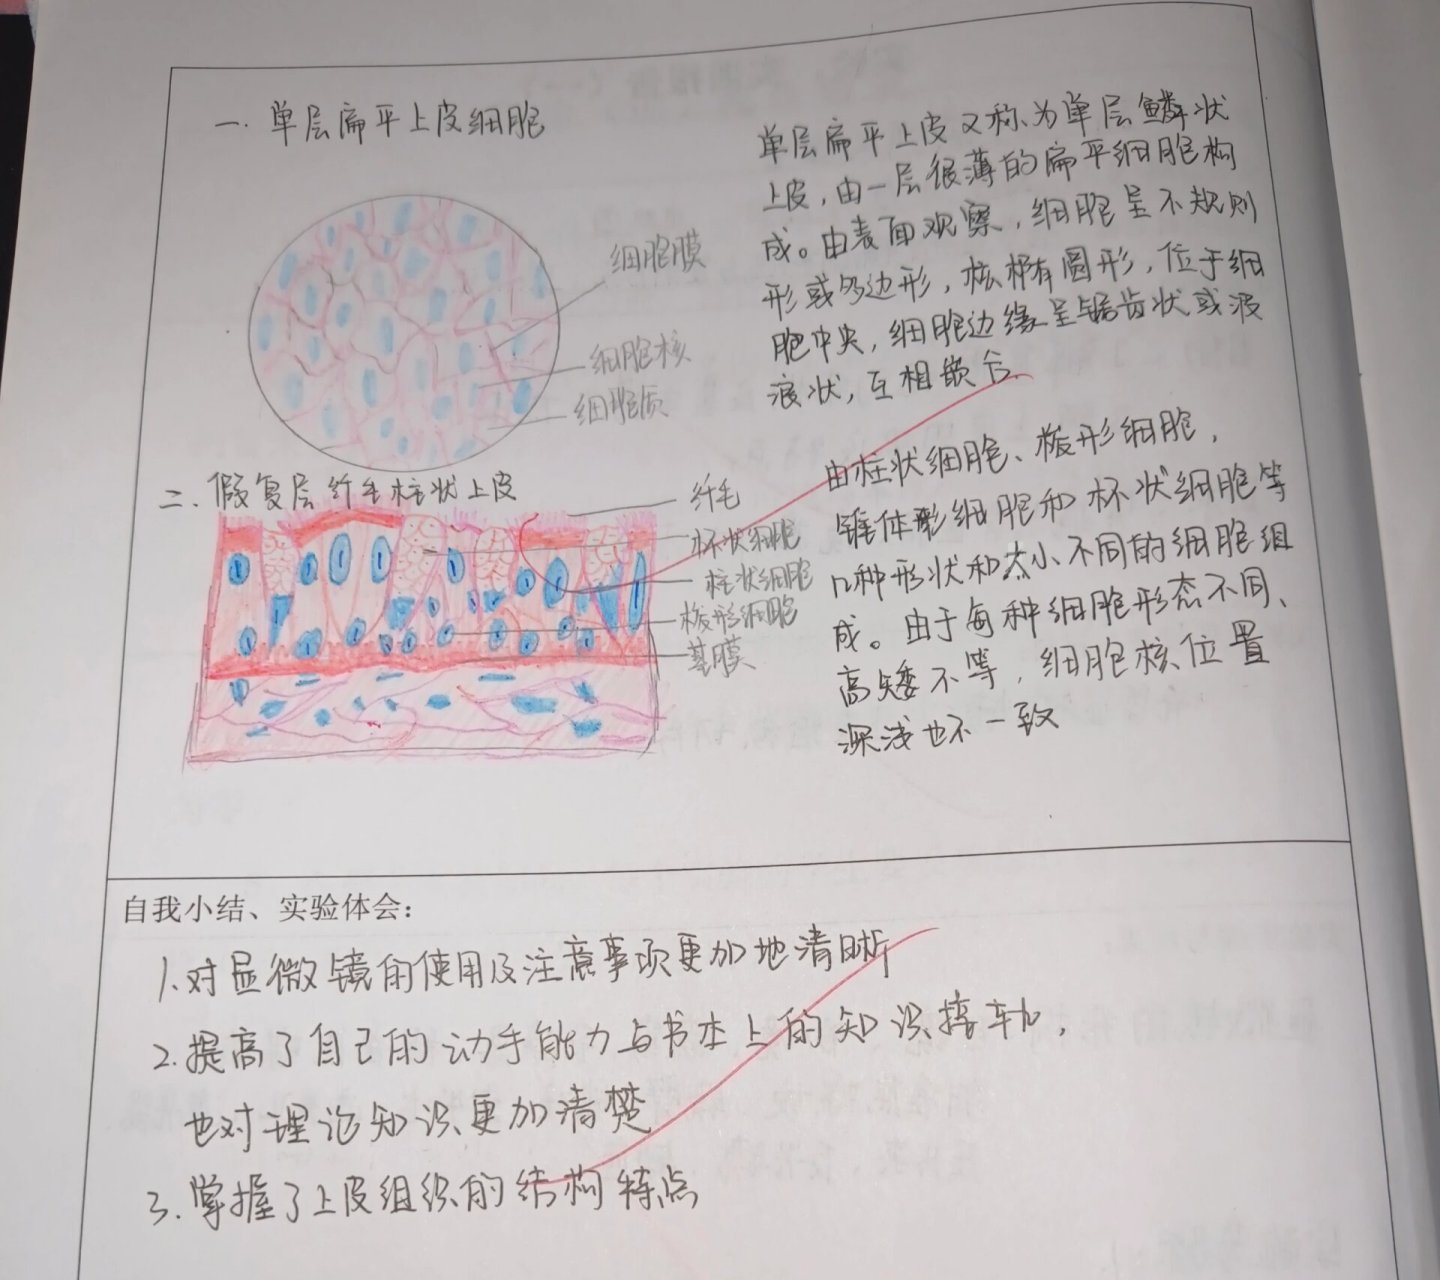 一. 单层扁平上皮细胞
细胞膜
细胞核
细胞质
单层扁平上皮又称为单层鳞状
上皮，由一层很薄的扁平细胞构
成。由表面观察，细胞呈不规则
形或多边形，核椭圆形，位于细
胞中央，细胞边缘呈锯齿状或波
浪状，互相嵌合.
二、假复层纤毛柱状上皮
纤毛
杯状细胞
柱状细胞
梭形细胞
基膜
由柱状细胞、梭形细胞，
锥体形细胞和杯状细胞等
几种形状和大小不同的细胞组
成。由于每种细胞形态不同、
高矮不等，细胞核位置
深浅也不一致
自我小结、实验体会：
1.对显微镜的使用及注意事项更加地清晰
2.提高了自己的动手能力与书本上的知识接轨，
也对理论知识更加清楚
3.掌握了上皮组织的结构特点